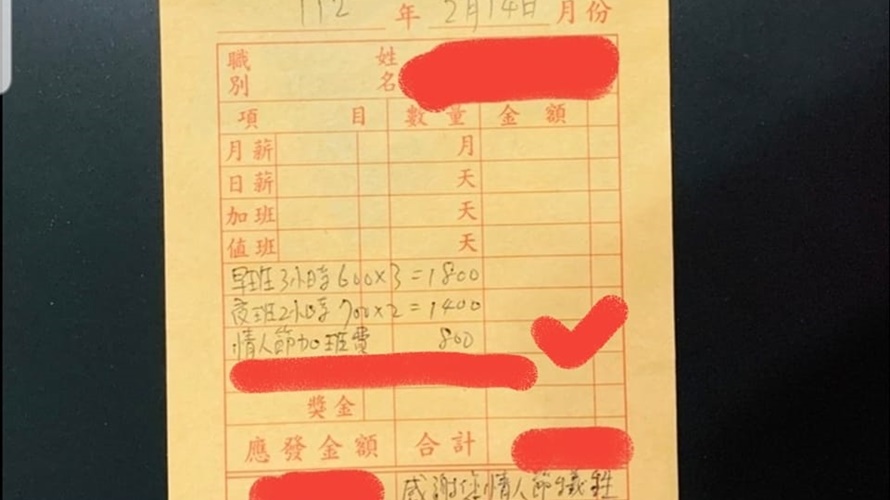 112 年 2月14日 月份
職別 姓名
項目 數量 金額
月薪 月
日薪 天
加班 天
值班 天
早班3小時600×3=1800
夜班2小時700×2=1400
情人節加班費 800
獎金
應發金額 合計
感謝您情人節犧牲